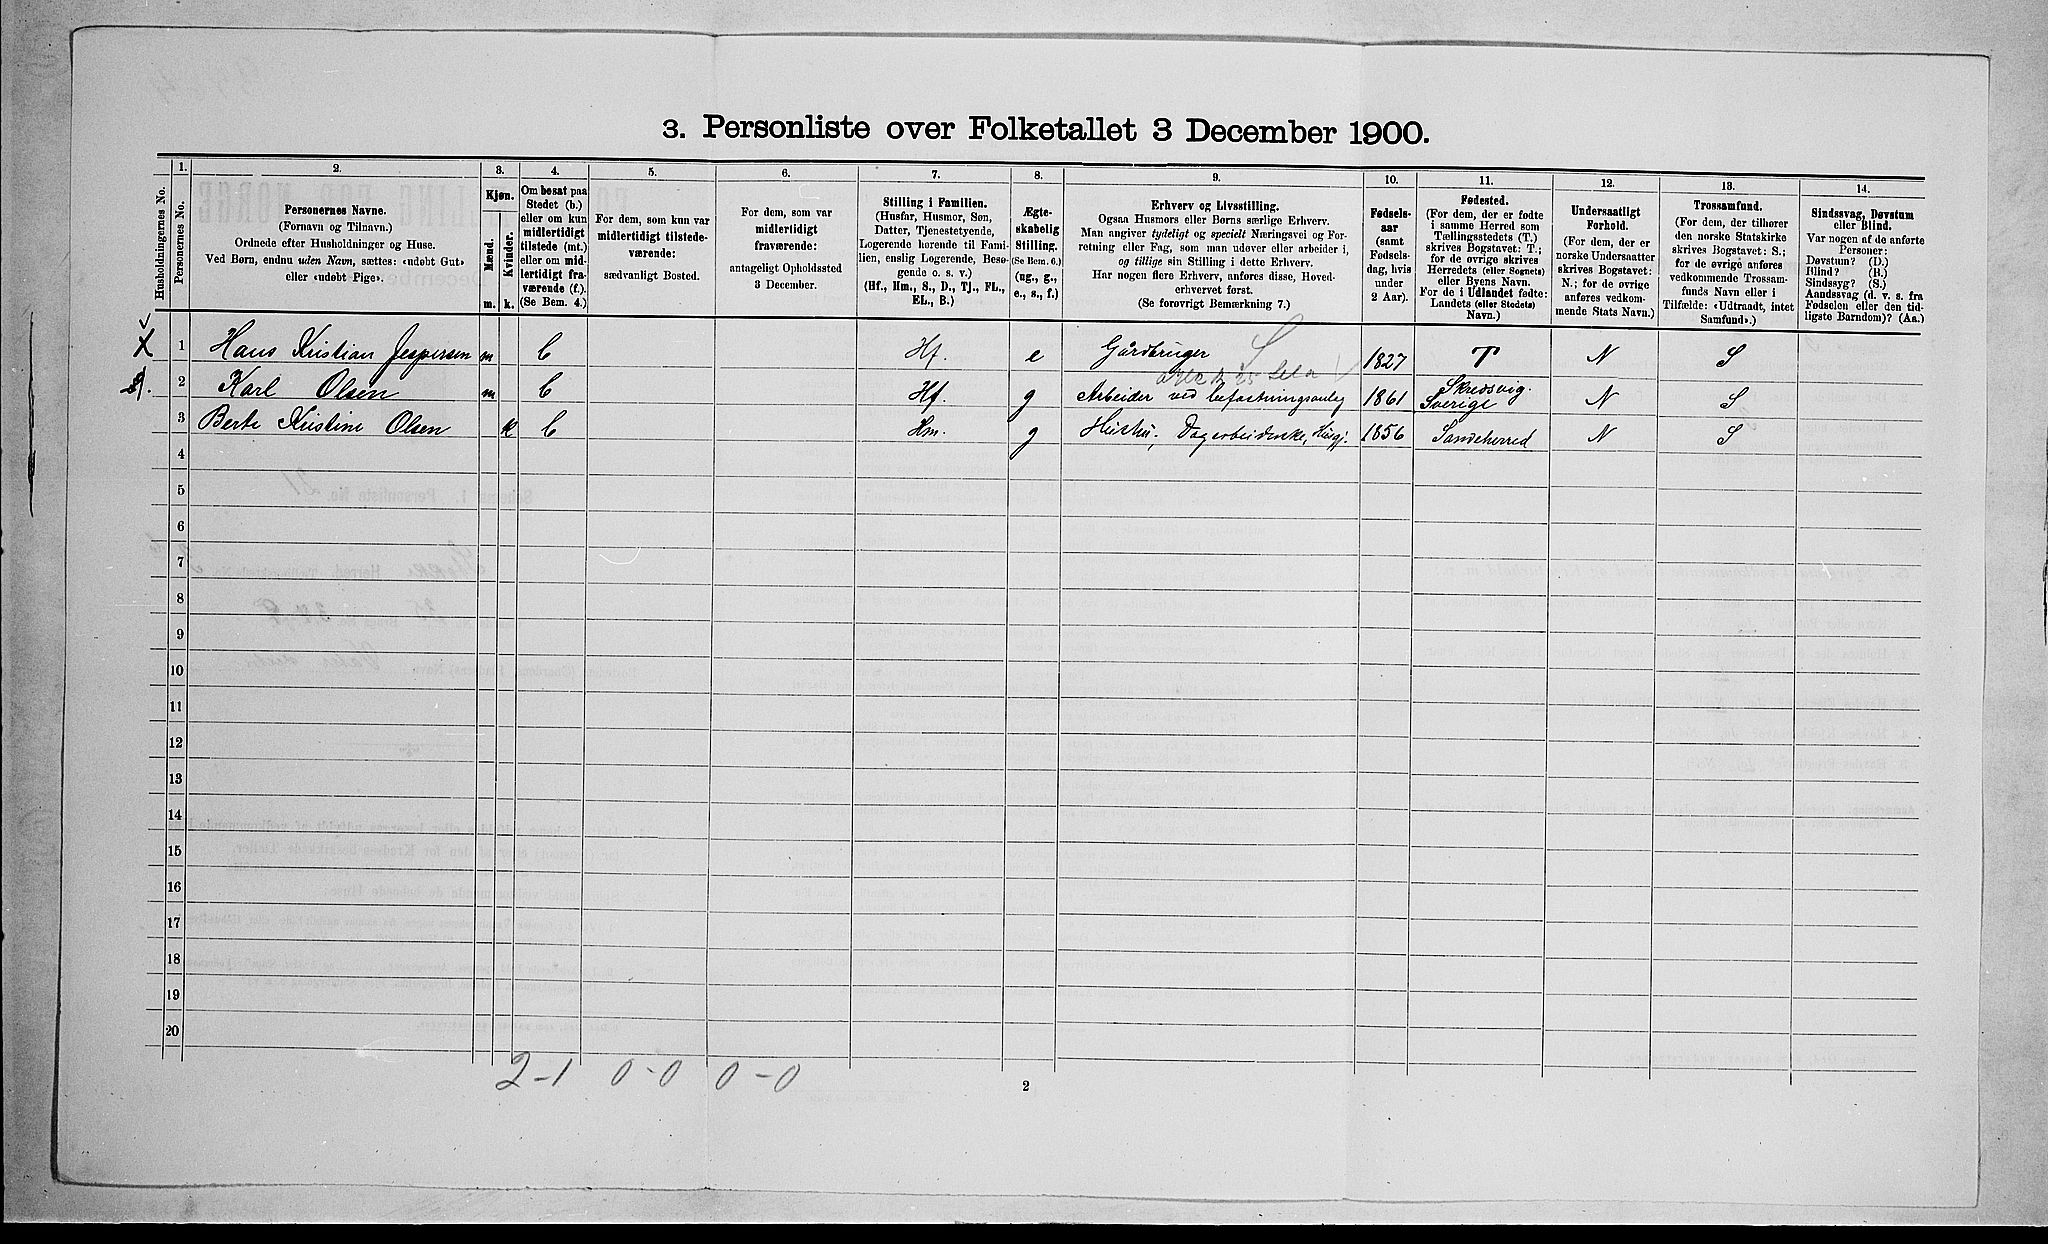 3. Personliste over Folketallet 3 December 1900.
1. 2. 3. 4. 5. 6. 7. 8. 9. 10. 11. 12. 13. 14.
Husholdningernes No.
Personernes No.
Personernes Navne.
(Fornavn og Tilnavn.)
Ordnede efter Husholdninger og Huse.
Ved Børn, endnu uden Navn, sættes: «udøbt Gut»
eller «udøbt Pige».
Kjøn.
Mænd.
Kvinder.
m. k.
Om bosat paa
Stedet (b.)
eller om kun
midlertidigt
tilstede (mt.)
eller om mid-
lertidigt fra-
værende (f.).
(Se Bem. 4.)
For dem, som kun var
midlertidigt tilstede-
værende:
sædvanligt Bosted.
For dem, som var
midlertidigt
fraværende:
antageligt Opholdssted
3 December.
Stilling i Familien.
(Husfar, Husmor, Søn,
Datter, Tjenestetyende,
Logerende hørende til Fami-
lien, enslig Logerende, Besø-
gende o. s. v.)
(Hf., Hm., S., D., Tj., FL.,
EL., B.)
Ægte-
skabelig
Stilling.
(Se Bem. 6.)
(ug., g.,
e., s., f.)
Erhverv og Livsstilling.
Ogsaa Husmors eller Børns særlige Erhverv.
Man angiver tydeligt og specielt Næringsvei og For-
retning eller Fag, som man udøver eller arbeider i,
og tillige sin Stilling i dette Erhverv.
Har nogen flere Erhverv, anføres disse, Hoved-
erhvervet først.
(Se forøvrigt Bemærkning 7.)
Fødsels-
aar
(samt
Fødsels-
dag, hvis
under
2 Aar).
Fødested.
(For dem, der er fødte
i samme Herred som
Tællingsstedets (T.)
skrives Bogstavet: T.;
for de øvrige skrives
Herredets (eller Sognets)
eller Byens Navn.
For de i Udlandet fødte:
Landets (eller Stedets)
Navn.)
Undersaatligt
Forhold.
(For dem, der er
norske Undersaatter
skrives Bogstavet:
N.; for de øvrige
anføres vedkom-
mende Stats Navn.)
Trossamfund.
(For dem, der tilhører
den norske Statskirke
skrives Bogstavet: S.;
for de øvrige anføres
vedkommende Trossam-
funds Navn eller i
Tilfælde: «Udtraadt, intet
Samfund».)
Sindssvag, Døvstum
eller Blind.
Var nogen af de anførte
Personer:
Døvstum? (D.)
Blind? (B.)
Sindssyg? (S.)
Aandssvag (d. v. s. fra
Fødselen eller den tid-
ligste Barndom)? (Aa.)
X 1 Hans Kristian Jespersen m b Hf. e Gårdbruger 1827 T N S
2 Karl Olsen m b Hf. g Arbeider ved befæstningsanleg 1861 Skredsvig. Sverige N S
3 Berte Kristine Olsen k b Hm. g Hustru, Dagarbeiderske, Husgj. 1856 Sandeherred N S
4
5
6
7
8
9
10
11
12
13
14
15
16
17
18
19
20
2-1 0-0 0-0
2